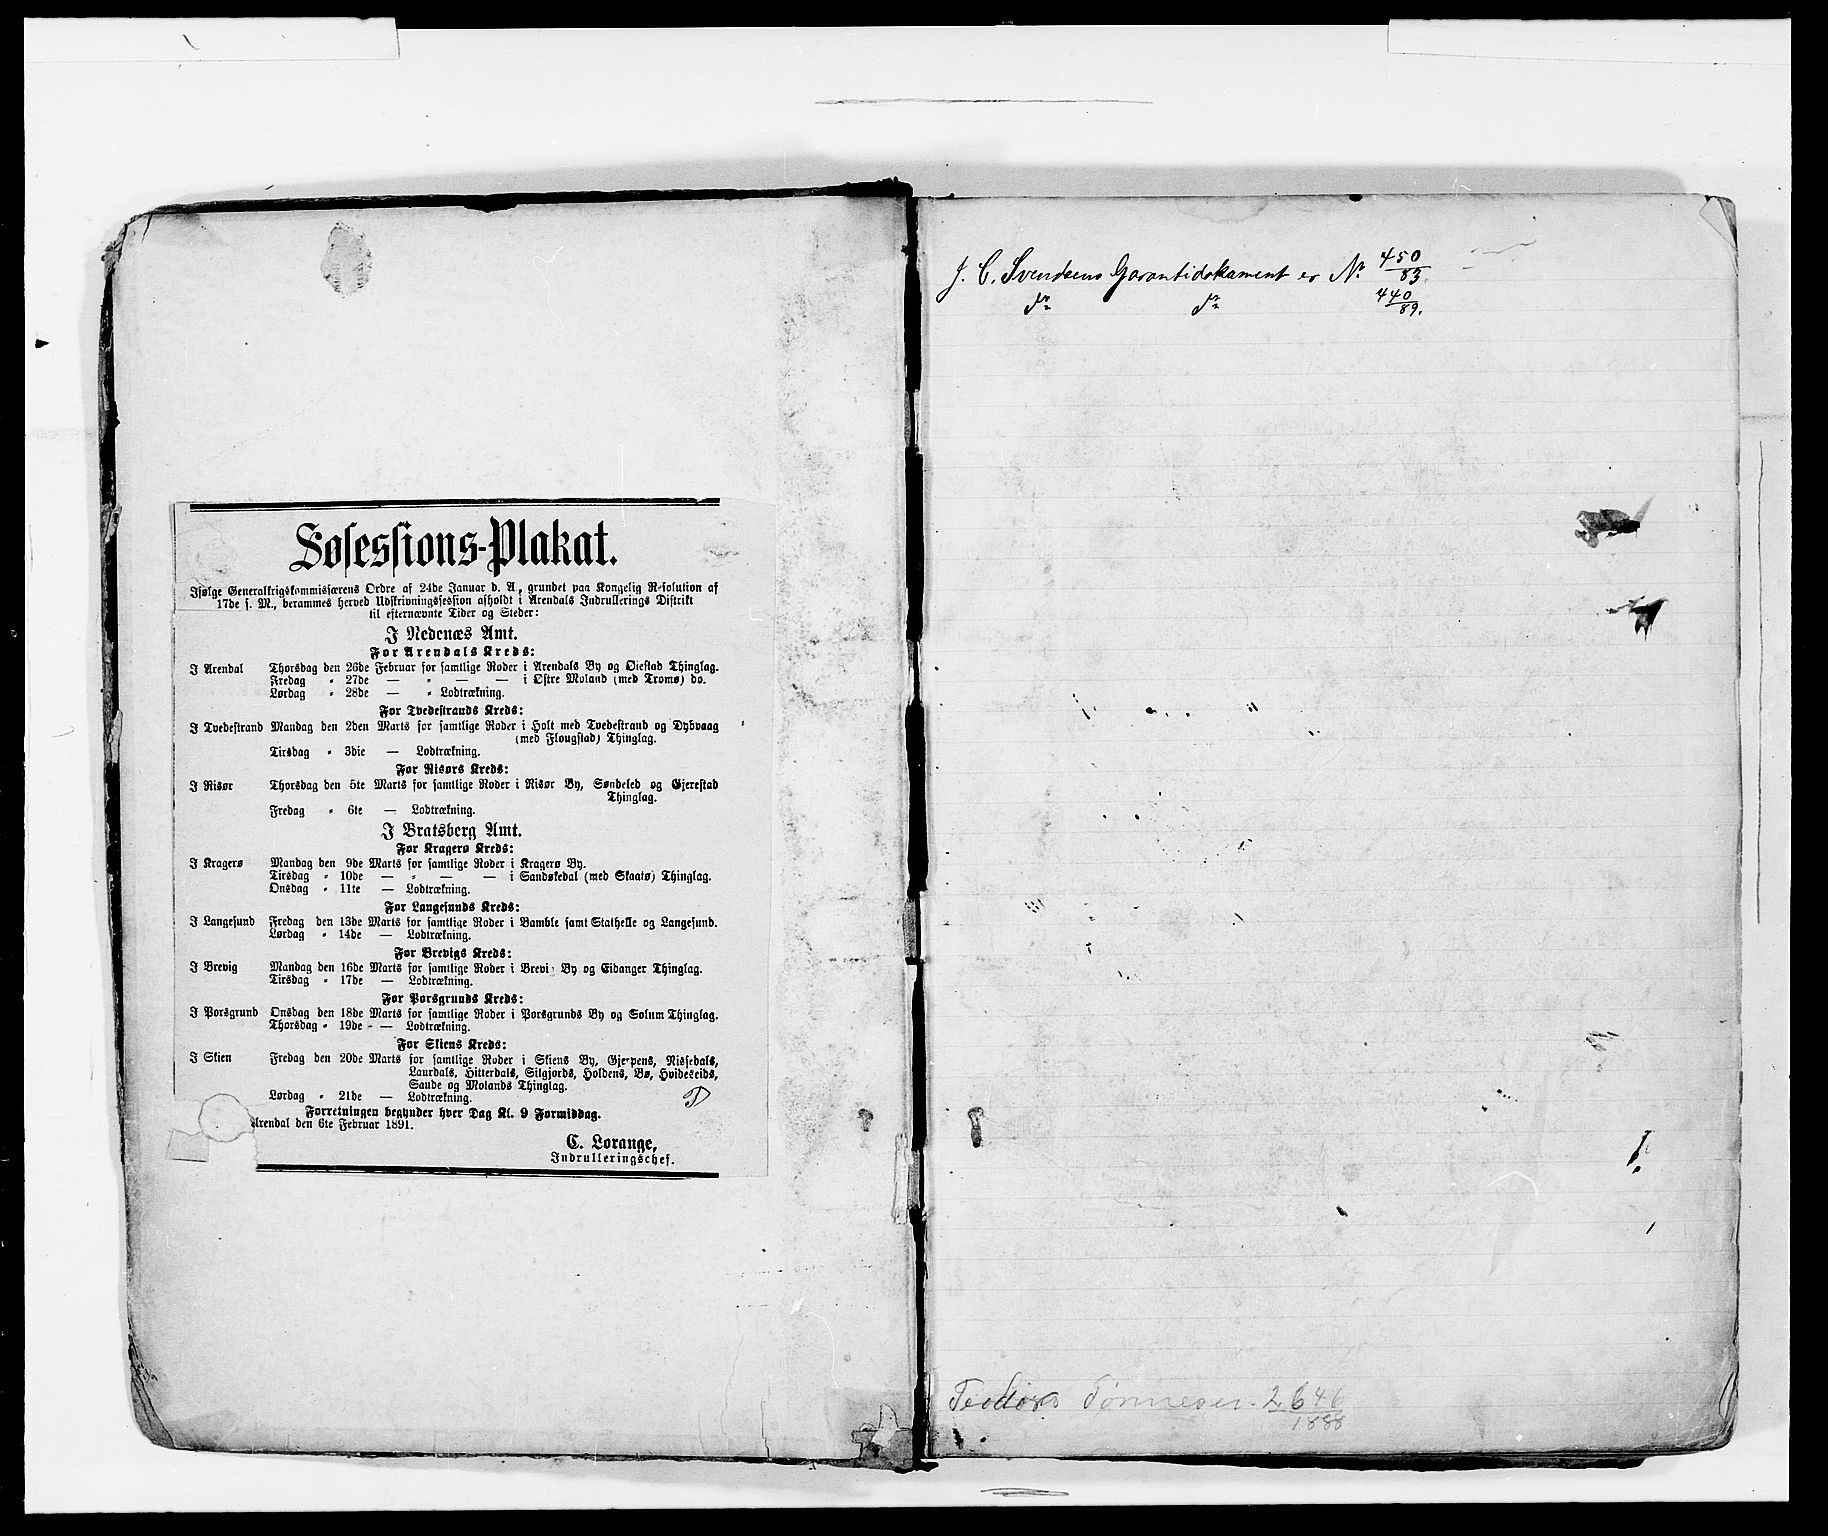 Søsessions-Plakat.
Ifølge Generalkrigskommissærens Ordre af 24de Januar d. A., grundet paa Kongelig R-solution af
17de s. M., berammes herved Udskrivningssession afholdt i Arendals Indrullerings Distrikt
til efternævnte Tider og Steder:
I Nedenæs Amt.
For Arendals Kreds:
I Arendal Thorsdag den 26de Februar for samtlige Roder i Arendals By og Øiestad Thinglag.
Fredag " 27de — " — — i Østre Moland (med Tromø) do.
Lørdag " 28de — " Lodtrækning.
For Tvedestrands Kreds:
I Tvedestrand Mandag den 2den Marts for samtlige Roder i Holt med Tvedestrand og Dybvaag
(med Flougstad) Thinglag.
Tirsdag " 3die — Lodtrækning.
For Risørs Kreds:
I Risør Thorsdag den 5te Marts for samtlige Roder i Risør By, Søndeled og Gjerestad
Thinglag.
Fredag " 6te — Lodtrækning.
I Bratsberg Amt.
For Kragerø Kreds:
I Kragerø Mandag den 9de Marts for samtlige Roder i Kragerø By.
Tirsdag " 10de — " — — i Sandøkedal (med Skaatø) Thinglag.
Onsdag " 11te — Lodtrækning.
For Langesunds Kreds:
I Langesund Fredag den 13de Marts for samtlige Roder i Bamble samt Stathelle og Langesund.
Lørdag " 14de — Lodtrækning.
For Brevigs Kreds:
I Brevig Mandag den 16de Marts for samtlige Roder i Brevi By og Eidanger Thinglag.
Tirsdag " 17de — Lodtrækning.
For Porsgrunds Kreds:
I Porsgrund Onsdag den 18de Marts for samtlige Roder i Porsgrunds By og Solum Thinglag.
Thorsdag " 19de - — Lodtrækning.
For Skiens Kreds:
I Skien Fredag den 20de Marts for samtlige Roder i Skiens By, Gjerpens, Nissedals,
Laurdals, Hitterdals, Silgjords, Holdens, Bø, Hvideseids,
Saude og Molands Thinglag.
Lørdag " 21de — Lodtrækning.
Forretningen begynder hver Dag Kl. 9 Formiddag.
Arendal den 6te Februar 1891.
C. Lorange,
Indrulleringschef.
J. C. Svendsens Garantidokument er No 450/83
do do 440/89.
Teodor Tönnesen 2646/1888